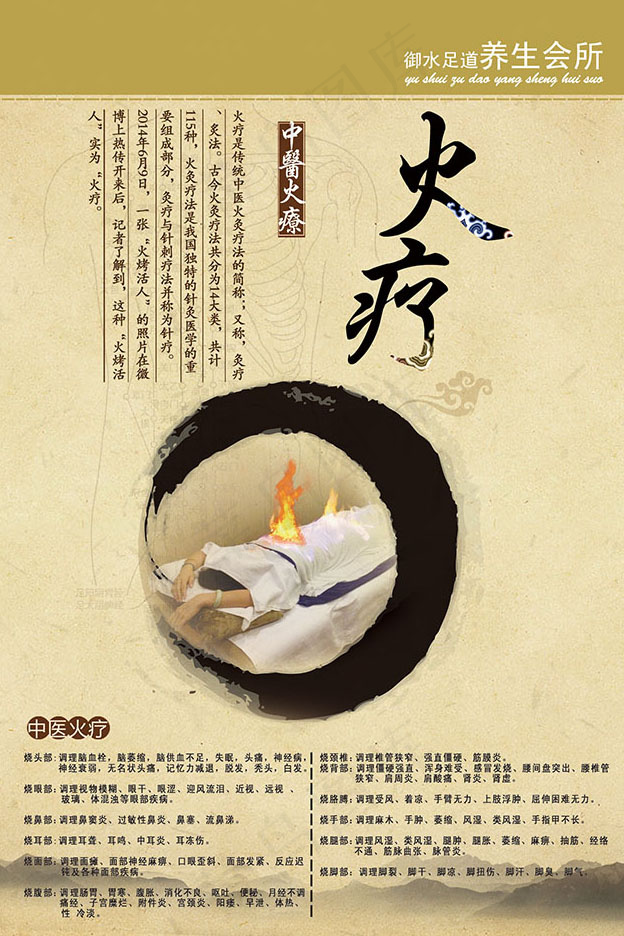 御水足道养生会所
yu shui zu dao yang sheng hui suo
火疗
中醫火療
火疗是传统中医火灸疗法的简称；又称，灸疗
、灸法。古今火灸疗法共分为14大类，共计
115种，火灸疗法是我国独特的针灸医学的重
要组成部分，灸疗与针刺疗法并称为针疗。
2014年6月9日，一张“火烤活人”的照片在微
博上热传开来后，记者了解到，这种“火烤活
人”实为“火疗。
中医火疗
烧头部:调理脑血栓，脑萎缩，脑供血不足，失眠，头痛，神经病，
神经衰弱，无名状头痛，记忆力减退，脱发，秃头，白发。
烧眼部:调理视物模糊、眼干、眼涩、迎风流泪、近视、远视 、
玻璃、体混浊等眼部疾病。
烧鼻部:调理鼻窦炎、过敏性鼻炎、鼻塞、流鼻涕。
烧耳部:调理耳聋、耳鸣、中耳炎、耳冻伤。
烧面部:调理面瘫、面部神经麻痹、口眼歪斜、面部发紧、反应迟
钝及各种面部疾病。
烧腹部:调理肠胃、胃寒、腹胀、消化不良、呕吐、便秘、月经不调
痛经、子宫糜烂、附件炎、宫颈炎、阳痿、早泄、体热、
性 冷淡。
烧颈椎:调理椎管狭窄、强直僵硬、筋膜炎。
烧背部:调理僵硬强直、浑身难受、感冒发烧、腰间盘突出、腰椎管
狭窄、肩周炎、肩酸痛、肾炎、肾虚。
烧胳膊:调理受风、着凉、手臂无力、上肢浮肿、屈伸困难无力。
烧手部:调理麻木、手肿、萎缩、风湿、类风湿、手指甲不长。
烧腿部:调理风湿、类风湿、腿肿、腿胀、萎缩、麻痹、抽筋、经络
不通、筋脉曲张、脉管炎。
烧脚部:调理脚裂、脚干、脚凉、脚扭伤、脚汗、脚臭、脚气。